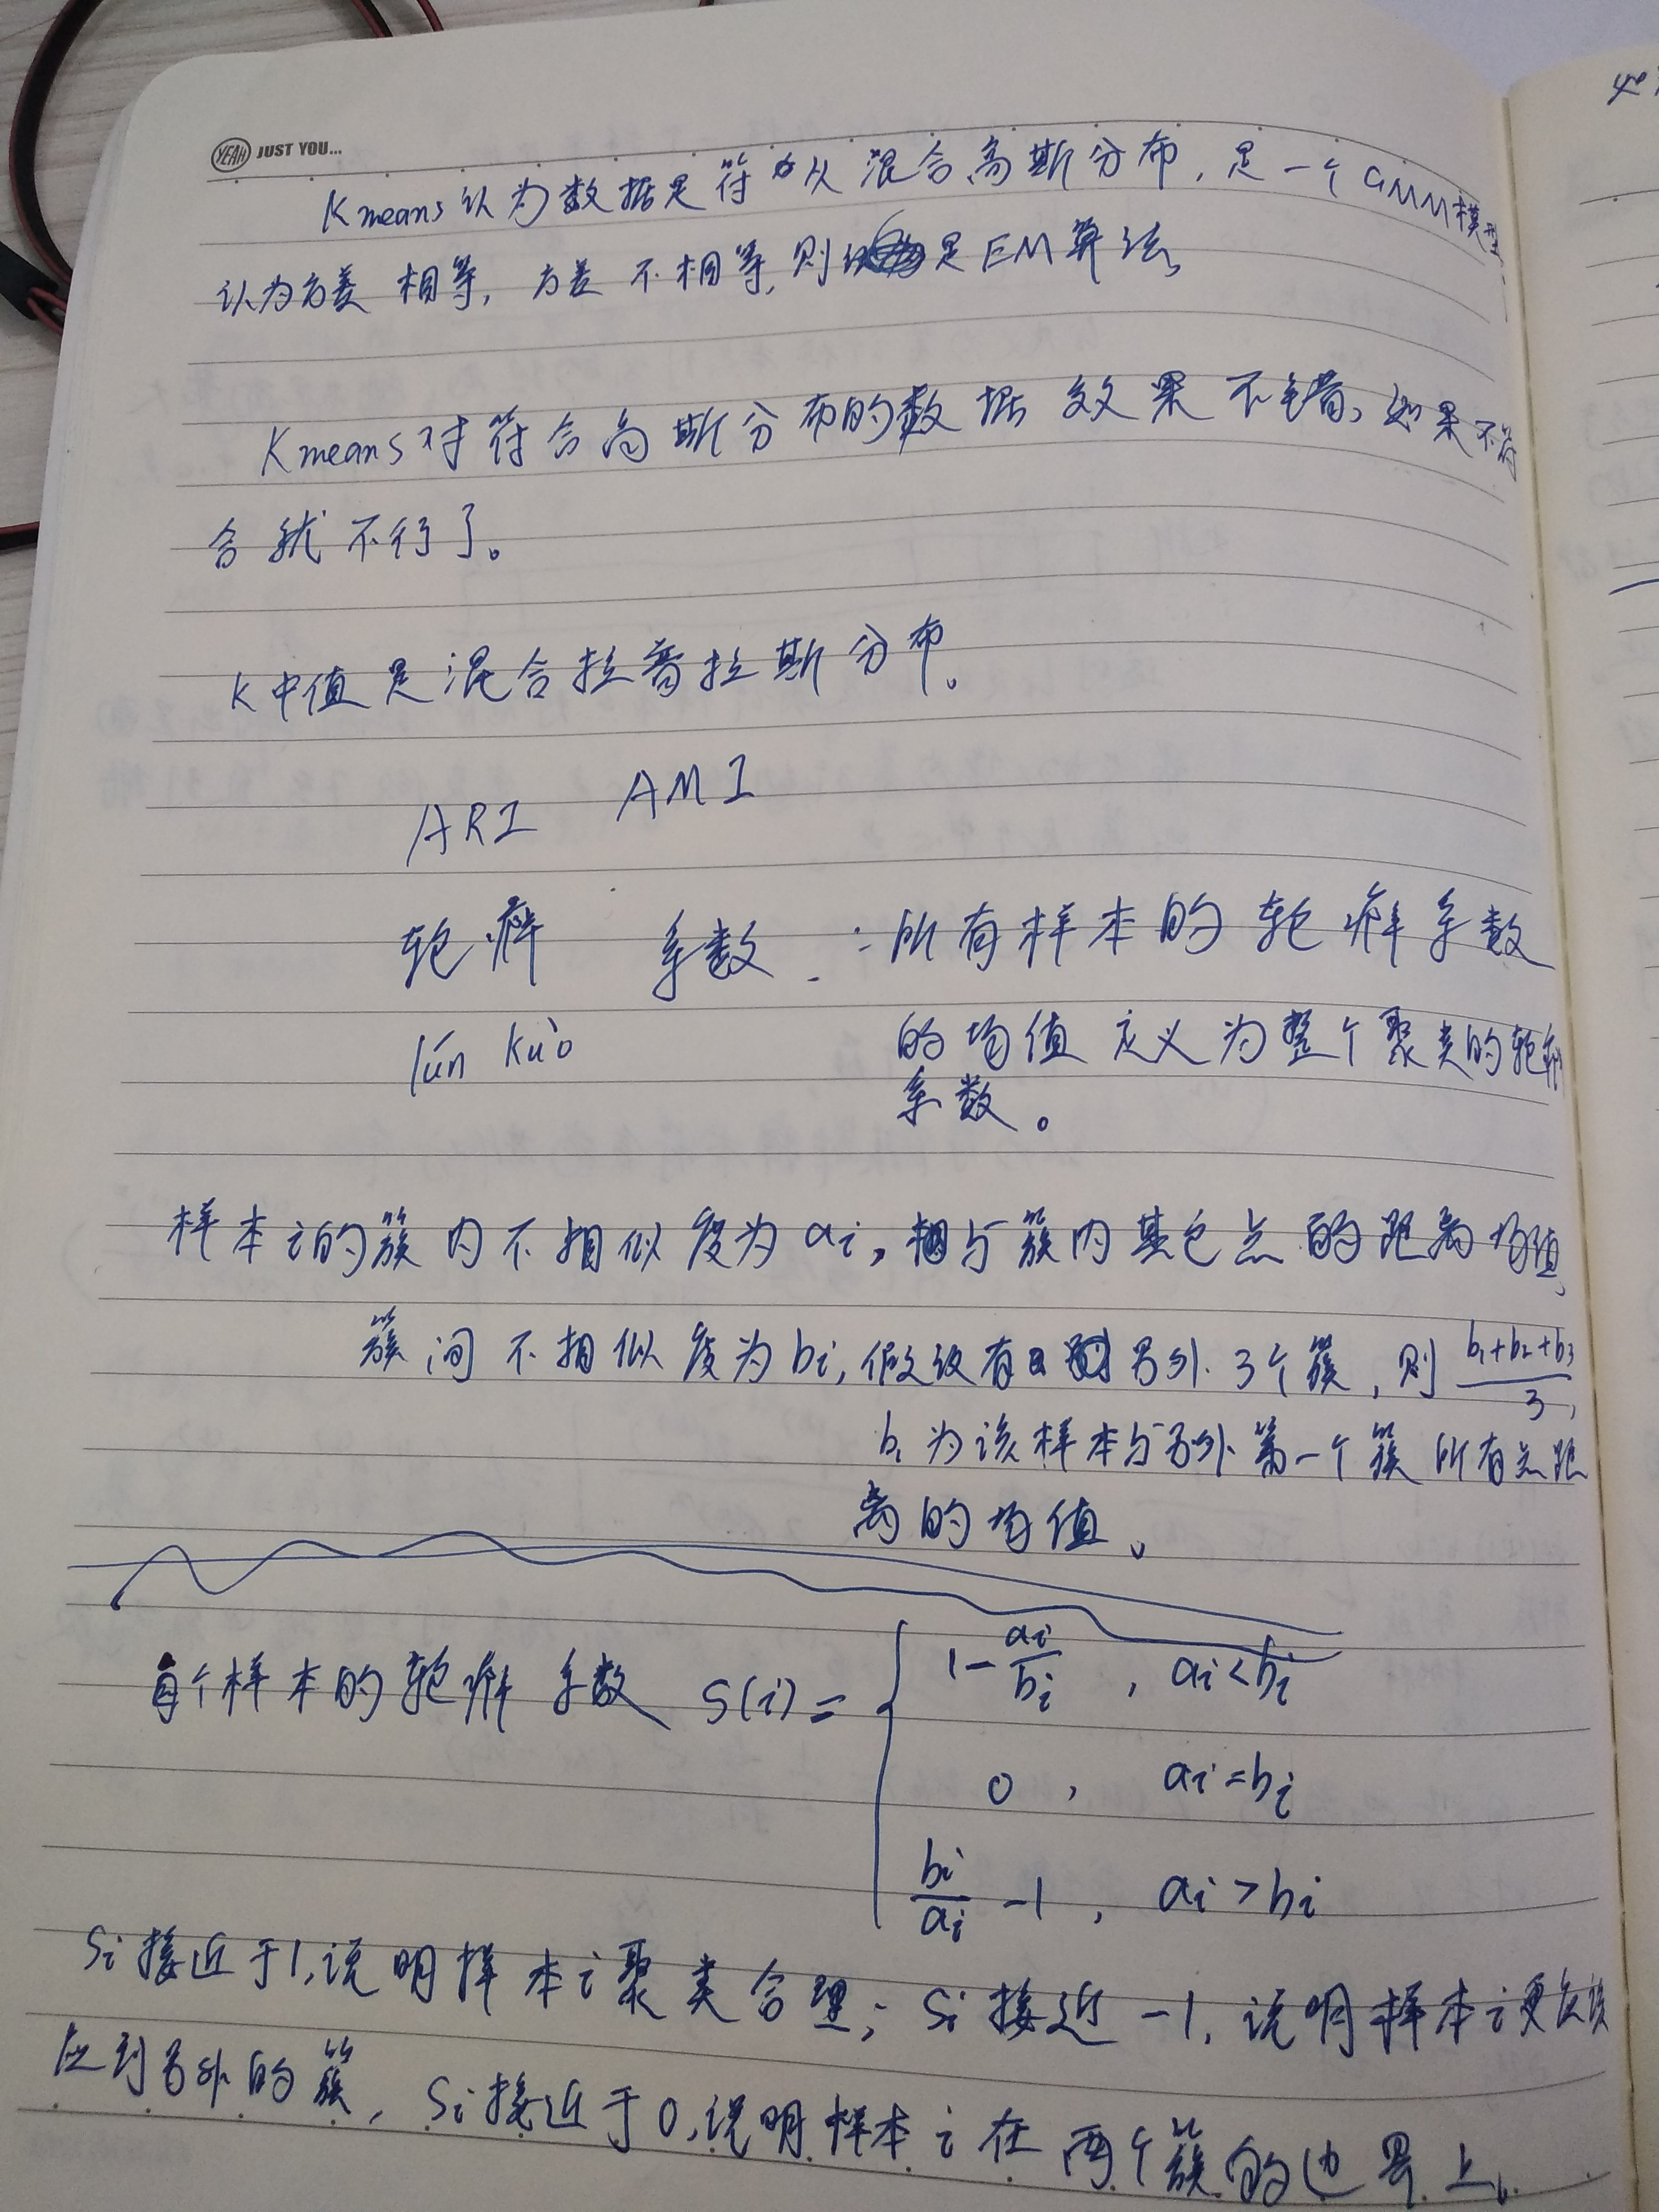 YEAH JUST YOU...
Kmeans认为数据是符从混合高斯分布，是一个GMM模型
认为方差相等，方差不相等，则是EM算法。
Kmeans对符合高斯分布的数据效果不错，如果不符
合就不行了。
K中值是混合拉普拉斯分布。
ARI AMI
轮廓系数：所有样本的轮廓系数
lún kuò 的均值定义为整个聚类的轮廓
系数。
样本i的簇内不相似度为ai，与簇内其它点的距离均值。
簇间不相似度为bi，假设有另外3个簇，则 (b₁+b₂+b₃)/3，
b₁为该样本与另外第一个簇所有点距
离的均值。
每个样本的轮廓系数 S(i)= { 1-ai/bi , ai<bi
0 , ai=bi
bi/ai -1 , ai>bi
Si接近于1，说明样本i聚类合理；Si接近-1，说明样本i更应该
到另外的簇，Si接近于0，说明样本i在两个簇的边界上。